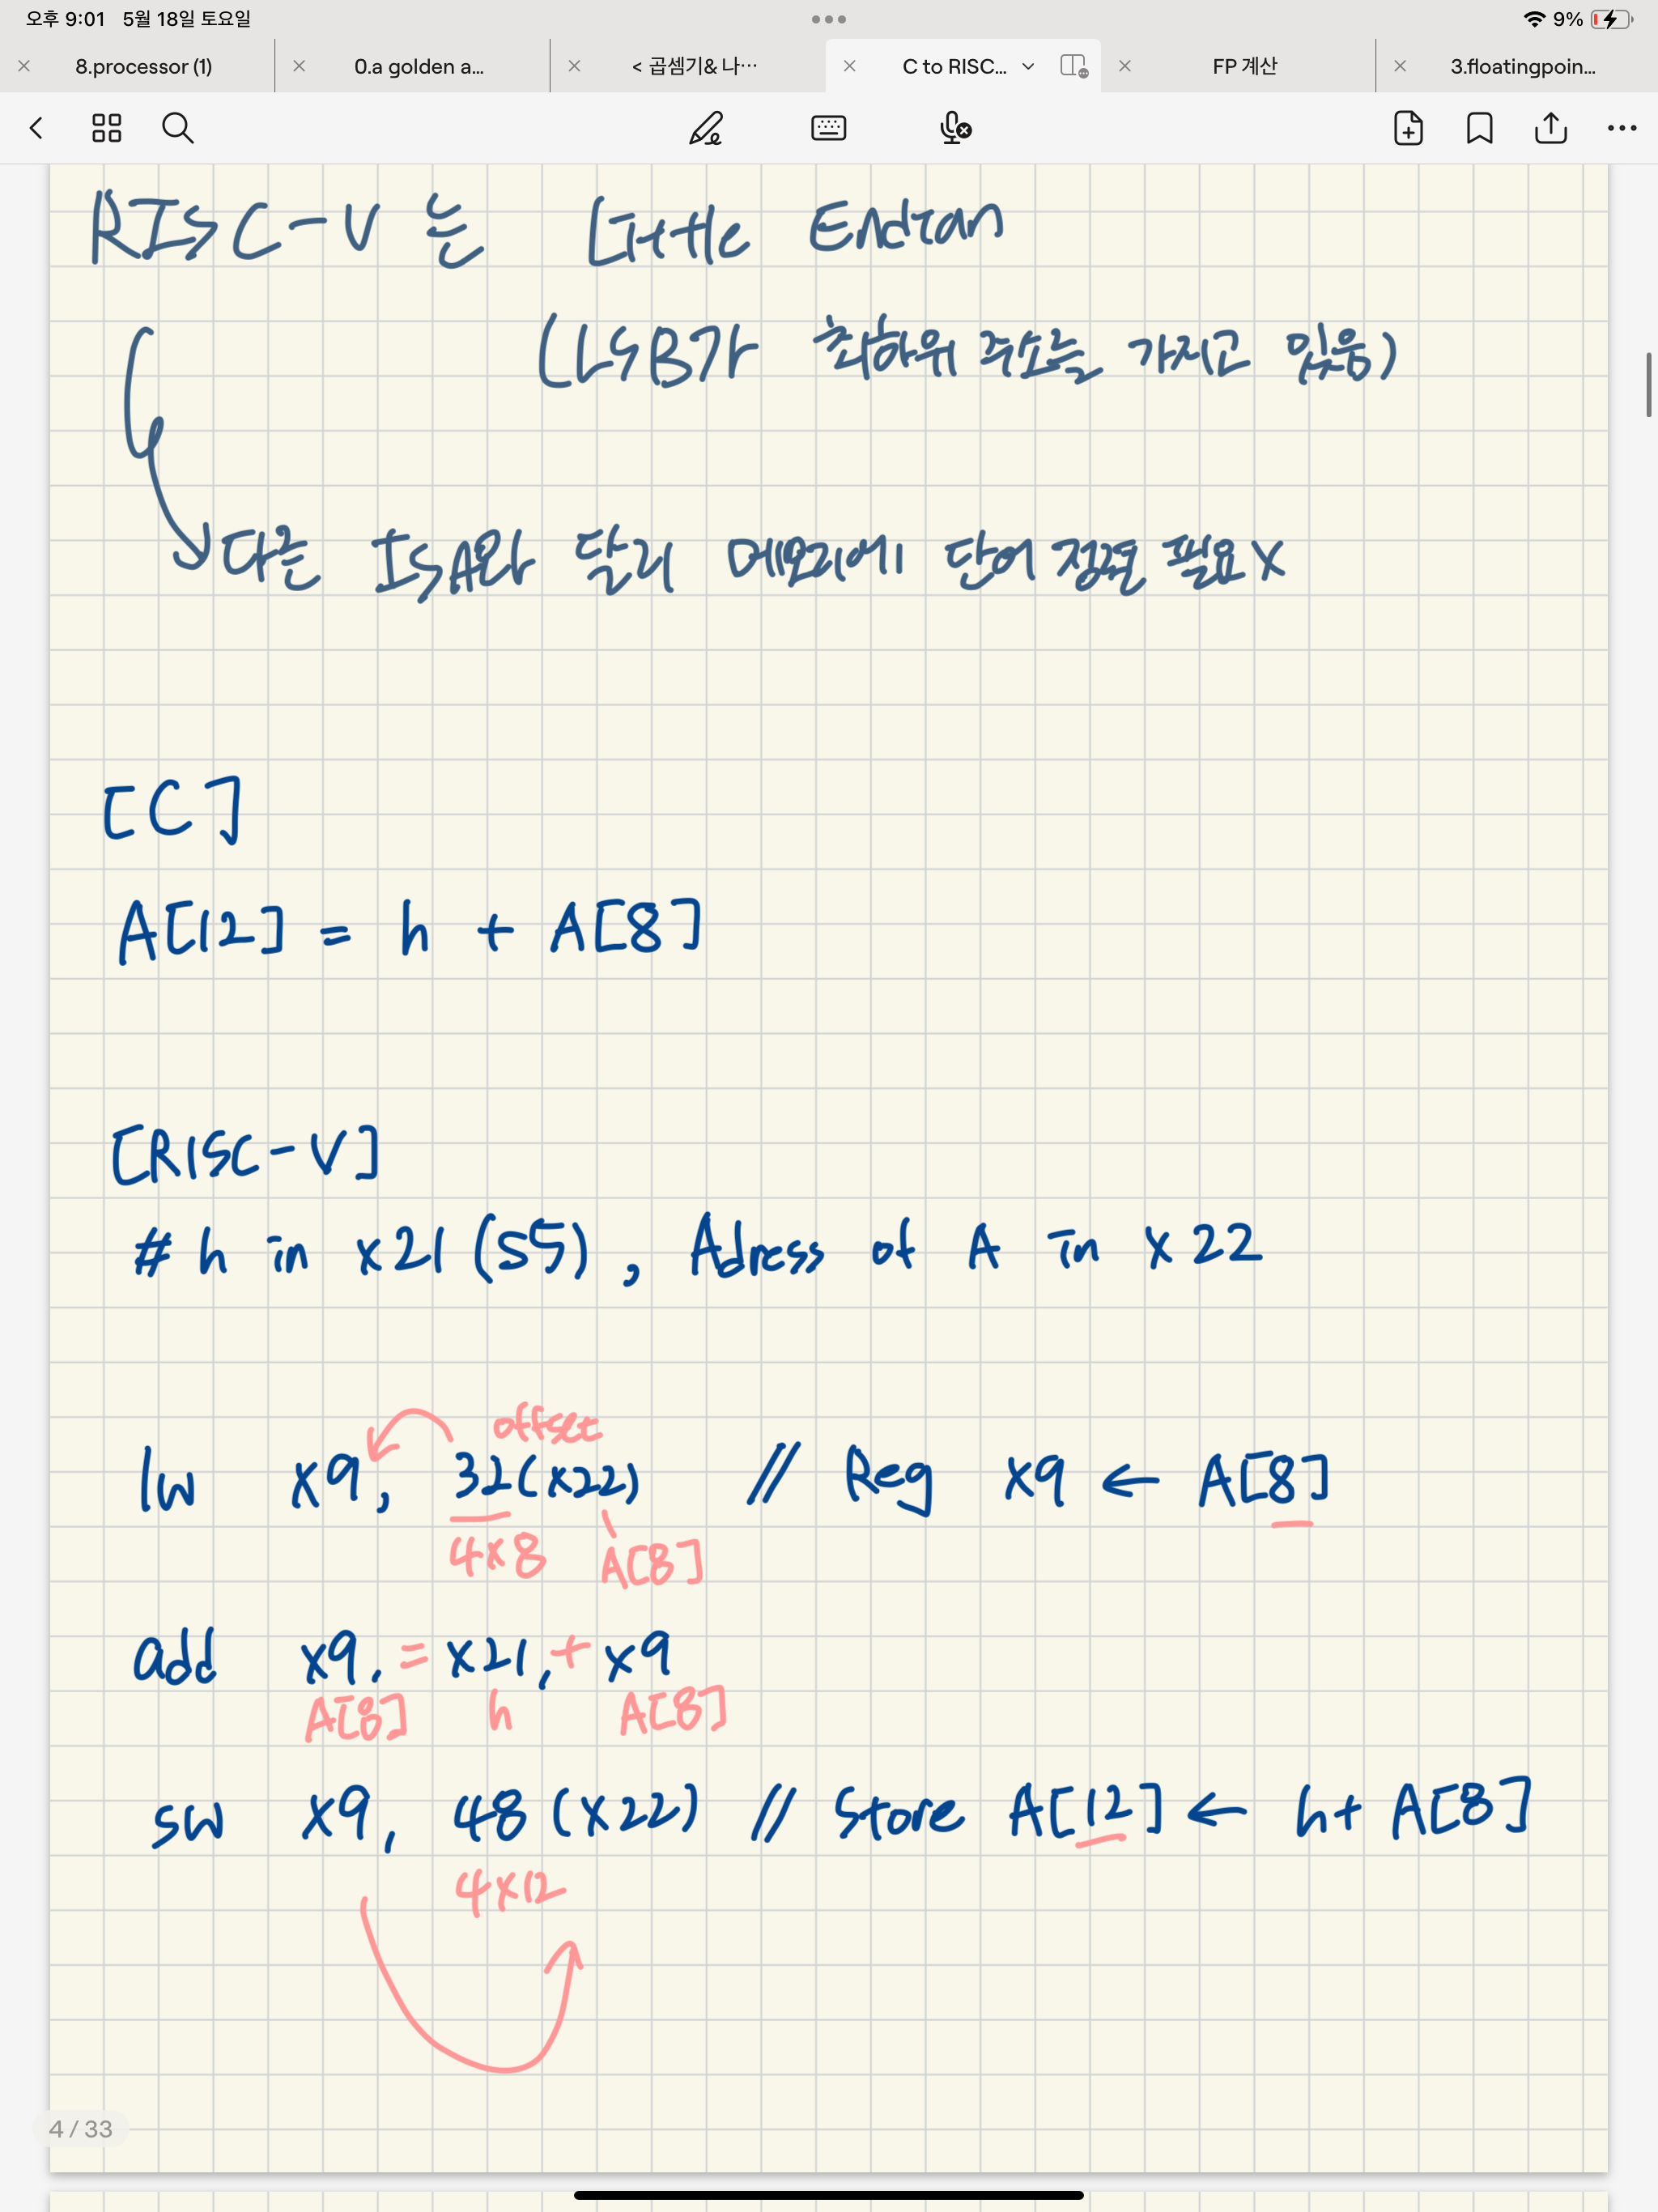 오후 9:01 5월 18일 토요일
9%
8.processor (1)
0.a golden a...
< 곱셈기& 나…
C to RISC...
FP 계산
3.floatingpoin...
RISC-V 는 Little Endian
(LSB가 최하위 주소를 가지고 있음)
다른 ISA와 달리 메모리에 단어 정렬 필요 X
[C]
A[12] = h + A[8]
[RISC-V]
# h in x21 (S5), Adress of A in x22
offset
lw x9, 32(x22) // Reg x9 ← A[8]
4x8 A[8]
add x9, = x21, + x9
A[8] h A[8]
sw x9, 48(x22) // Store A[12] ← h+ A[8]
4x12
4 / 33